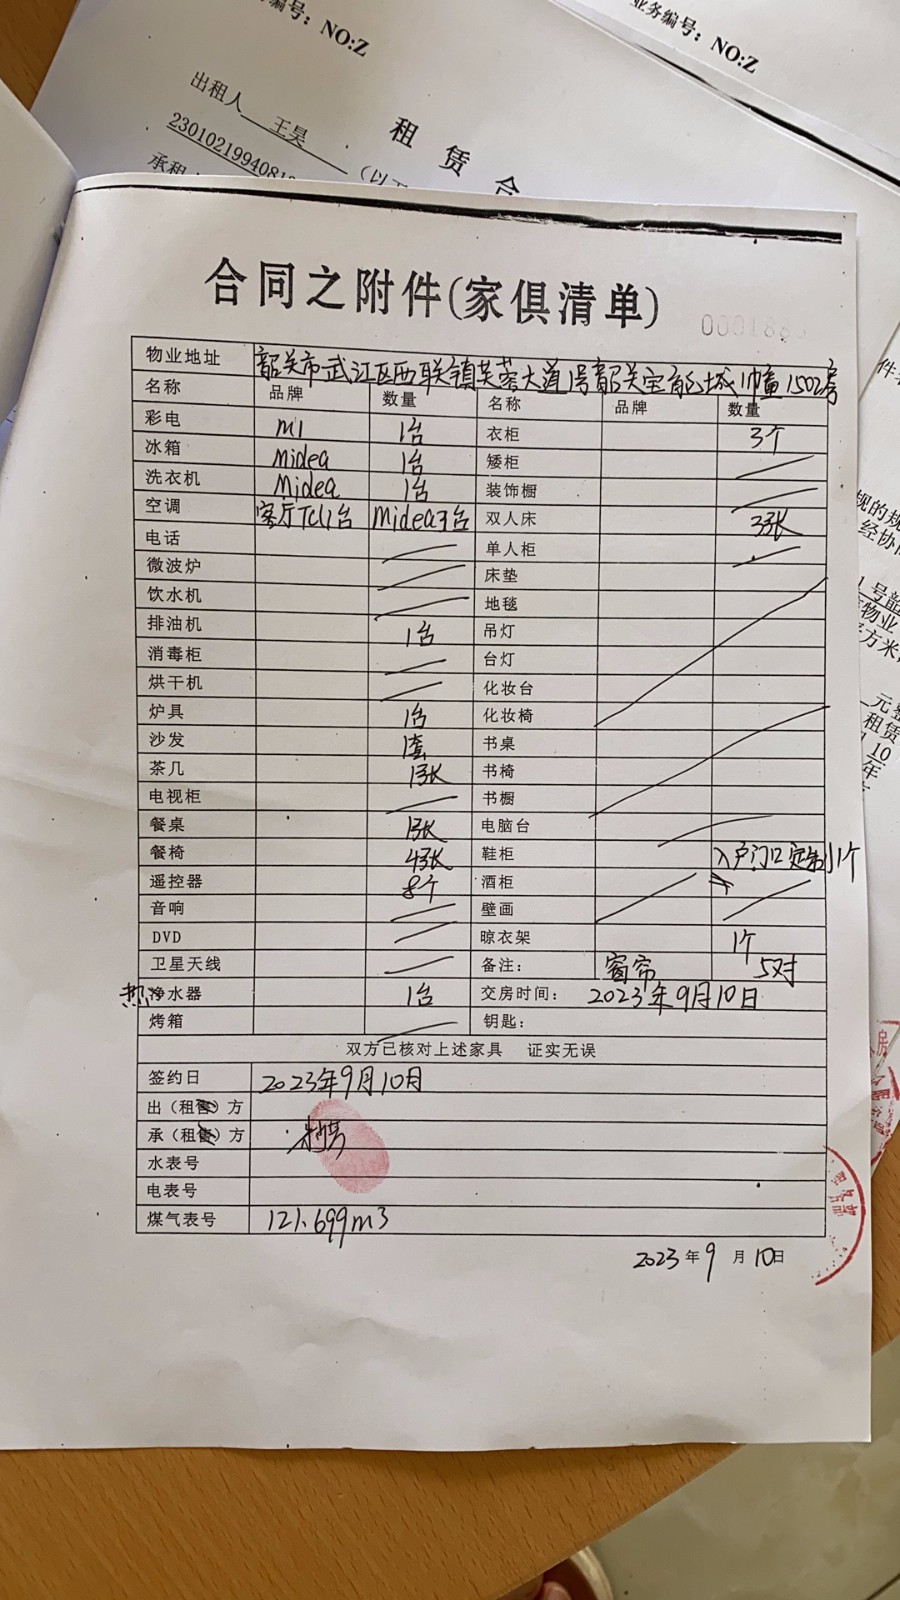 业务编号：NO:Z
编号：NO:Z
出租人 王昊
租 赁 合
2301021994081
承租
合同之附件(家俱清单)
物业地址 韶关市武江区西联镇芙蓉大道1号韶关宝能城 1502房
名称 品牌 数量 名称 品牌 数量
彩电 MI 1台 衣柜 3个
冰箱 Midea 1台 矮柜
洗衣机 Midea 1台 装饰橱
空调 客厅TCL1台 Midea3台 双人床 3张
电话 单人柜
微波炉 床垫
饮水机 地毯
排油机 1台 吊灯
消毒柜 台灯
烘干机 化妆台
炉具 1台 化妆椅
沙发 1套 书桌
茶几 1张 书椅
电视柜 书橱
餐桌 1张 电脑台
餐椅 4张 鞋柜 入户门口定制1个
遥控器 8个 酒柜
音响 壁画
DVD 晾衣架 1个
卫星天线 备注： 窗帘 5对
热净水器 1台 交房时间： 2023年9月10日
烤箱 钥匙：
双方已核对上述家具 证实无误
签约日 2023年9月10日
出（租售）方
承（租售）方
水表号
电表号
煤气表号 121.699m3
2023年9月10日
件
规的规
经协
号韶
物业
方米
元整
租赁
10
年